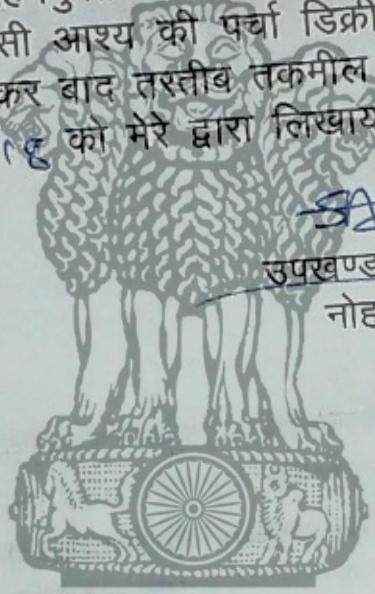 सी आश्य की पर्चा डिक्री
कर बाद तस्तीब तकमील
18 को मेरे द्वारा लिखाय
उपखण्ड
नोह